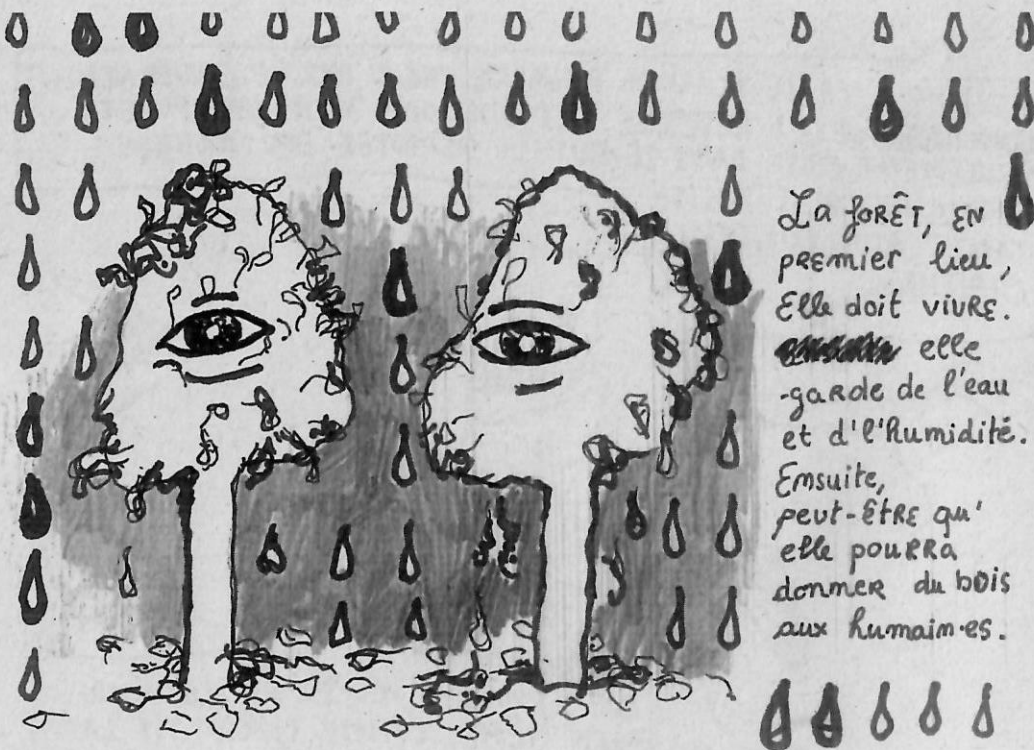 La forÊT, EN
PREMIER lieu,
Elle doit VIVRE.
elle
garde de l'eau
et d'l'humidité.
Ensuite,
peut-ÊTRE qu'
elle pouRRa
donner du bois
aux humain·es.